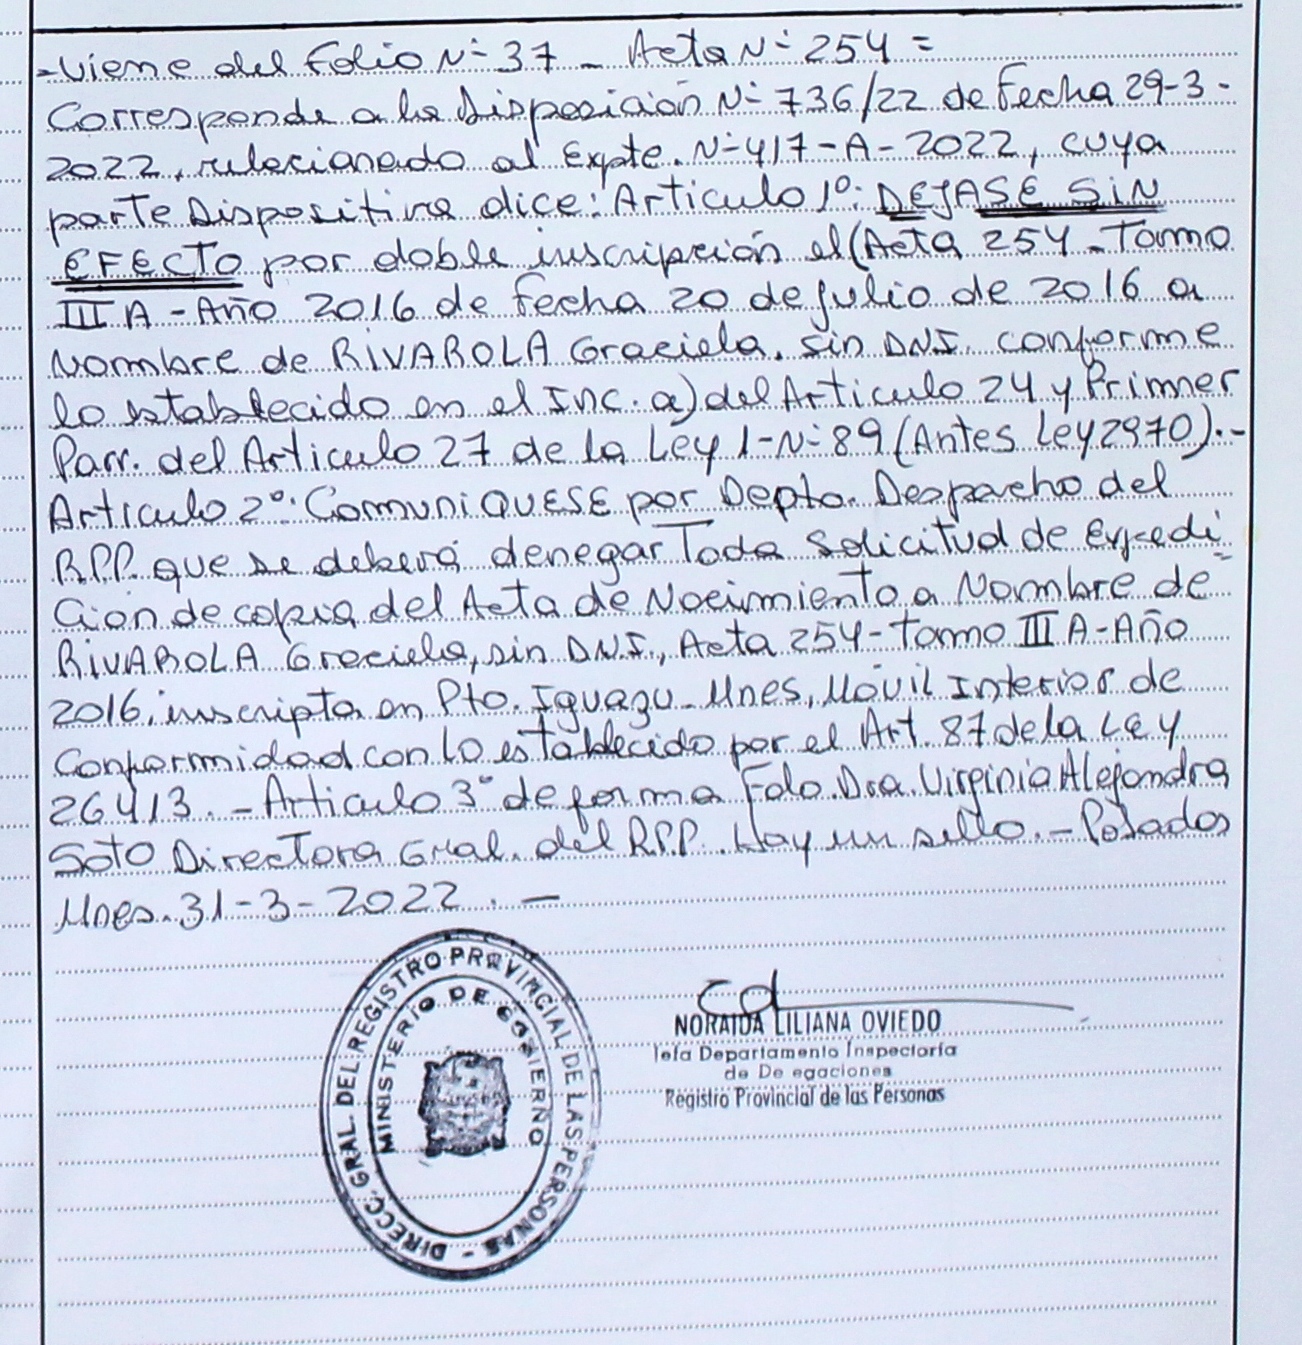 -Viene del Folio Nº 37 - Acta Nº 254 =
Corresponde a la Disposición Nº 736/22 de Fecha 29-3-
2022, relacionado al Expte. Nº 417-A-2022, cuya
parte Dispositiva dice: Articulo 1º: DEJASE SIN
EFECTO por doble inscripción el (Acta 254 - Tomo
III A - Año 2016 de fecha 20 de julio de 2016 a
Nombre de RIVAROLA Graciela, sin DNI. conforme
lo establecido en el Inc. a) del Articulo 24 y Primer
Parr. del Articulo 27 de la Ley 1-Nº 89 (Antes Ley 2970).-
Articulo 2º: ComuniQUESE por Depto. Despacho del
R.P.P. que se deberá denegar Toda Solicitud de Expedi
ción de copia del Acta de Nacimiento a Nombre de
RIVAROLA Graciela, sin D.N.I., Acta 254 - Tomo III A - Año
2016, inscripta en Pto. Iguazu - Mnes, Móvil Interior de
Conformidad con lo establecido por el Art. 87 de la Ley
26413. - Articulo 3º de forma Fdo. Dra. Virginia Alejandra
Soto Directora Gral. del R.P.P. Hay un sello. - Posadas
Mnes. 31-3-2022. -
DIRECC. GRAL. DEL REGISTRO PROVINCIAL DE LAS PERSONAS -
MINISTERIO DE GOBIERNO
NORAIDA LILIANA OVIEDO
Jefa Departamento Inspectoria
de De egaciones
Registro Provincial de las Personas